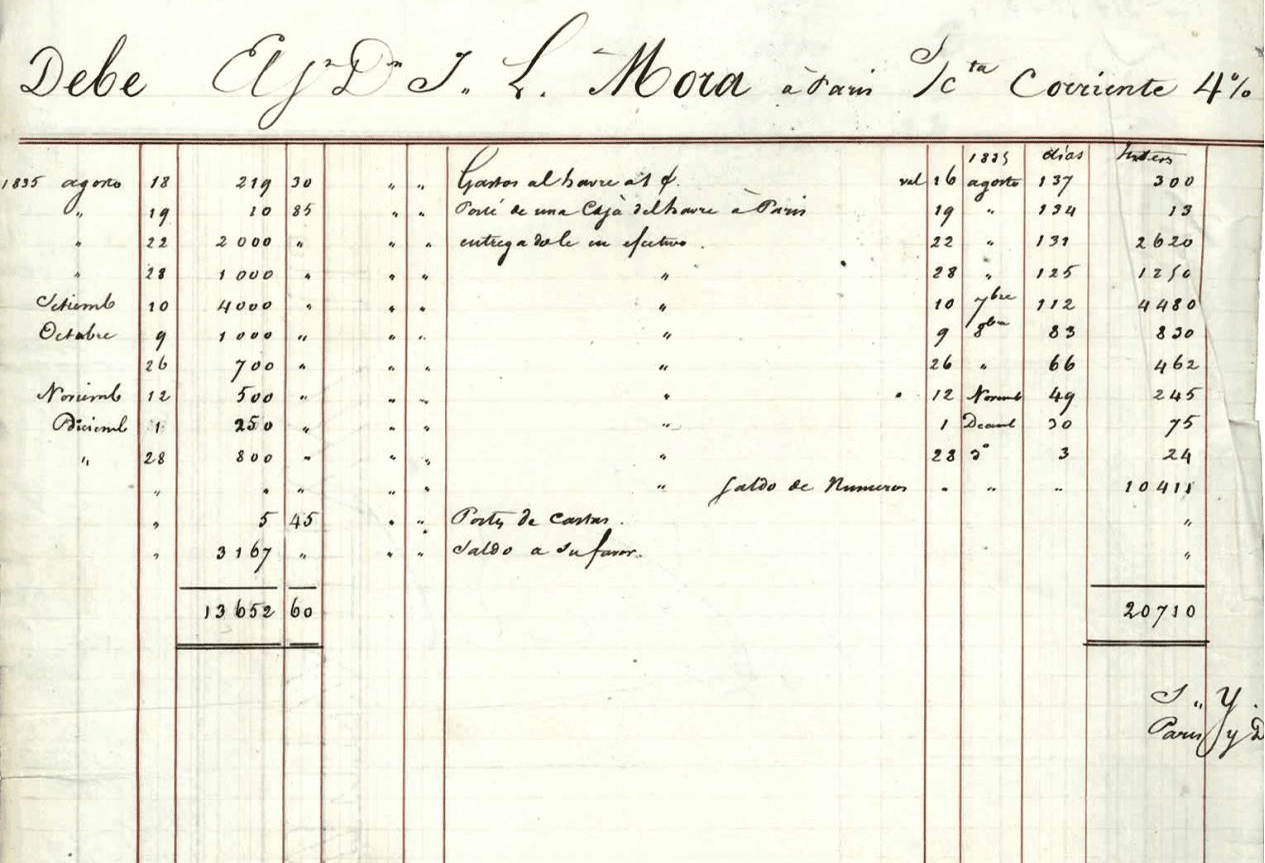 Debe El Sr Dn J. L. Mora à Paris S/cta Corriente 4%
1835 dias Inters
1835 agosto 18 219 30 " " Gastos al havre al val 16 agosto 137 300
" 19 10 85 " " Porte de una Caja del havre à Paris 19 " 134 13
" 22 2000 " " " entregadole en efectivo. 22 " 131 2620
" 28 1000 " " " " 28 " 125 1250
Setiemb 10 4000 " " " " 10 7bre 112 4480
Octubre 9 1000 " " " " 9 8bre 83 830
26 700 " " " " 26 " 66 462
Noviemb 12 500 " " " " 12 Novemb 49 245
Diciemb 1 250 " " " " 1 Decemb 30 75
" 28 800 " " " " 28 do 3 24
" " " " " " Saldo de Numeros " " " 10411
" 5 45 " " Portes de cartas. "
" 3167 " " " Saldo a su favor. "
13652 60 20710
S. Y.
Paris y D